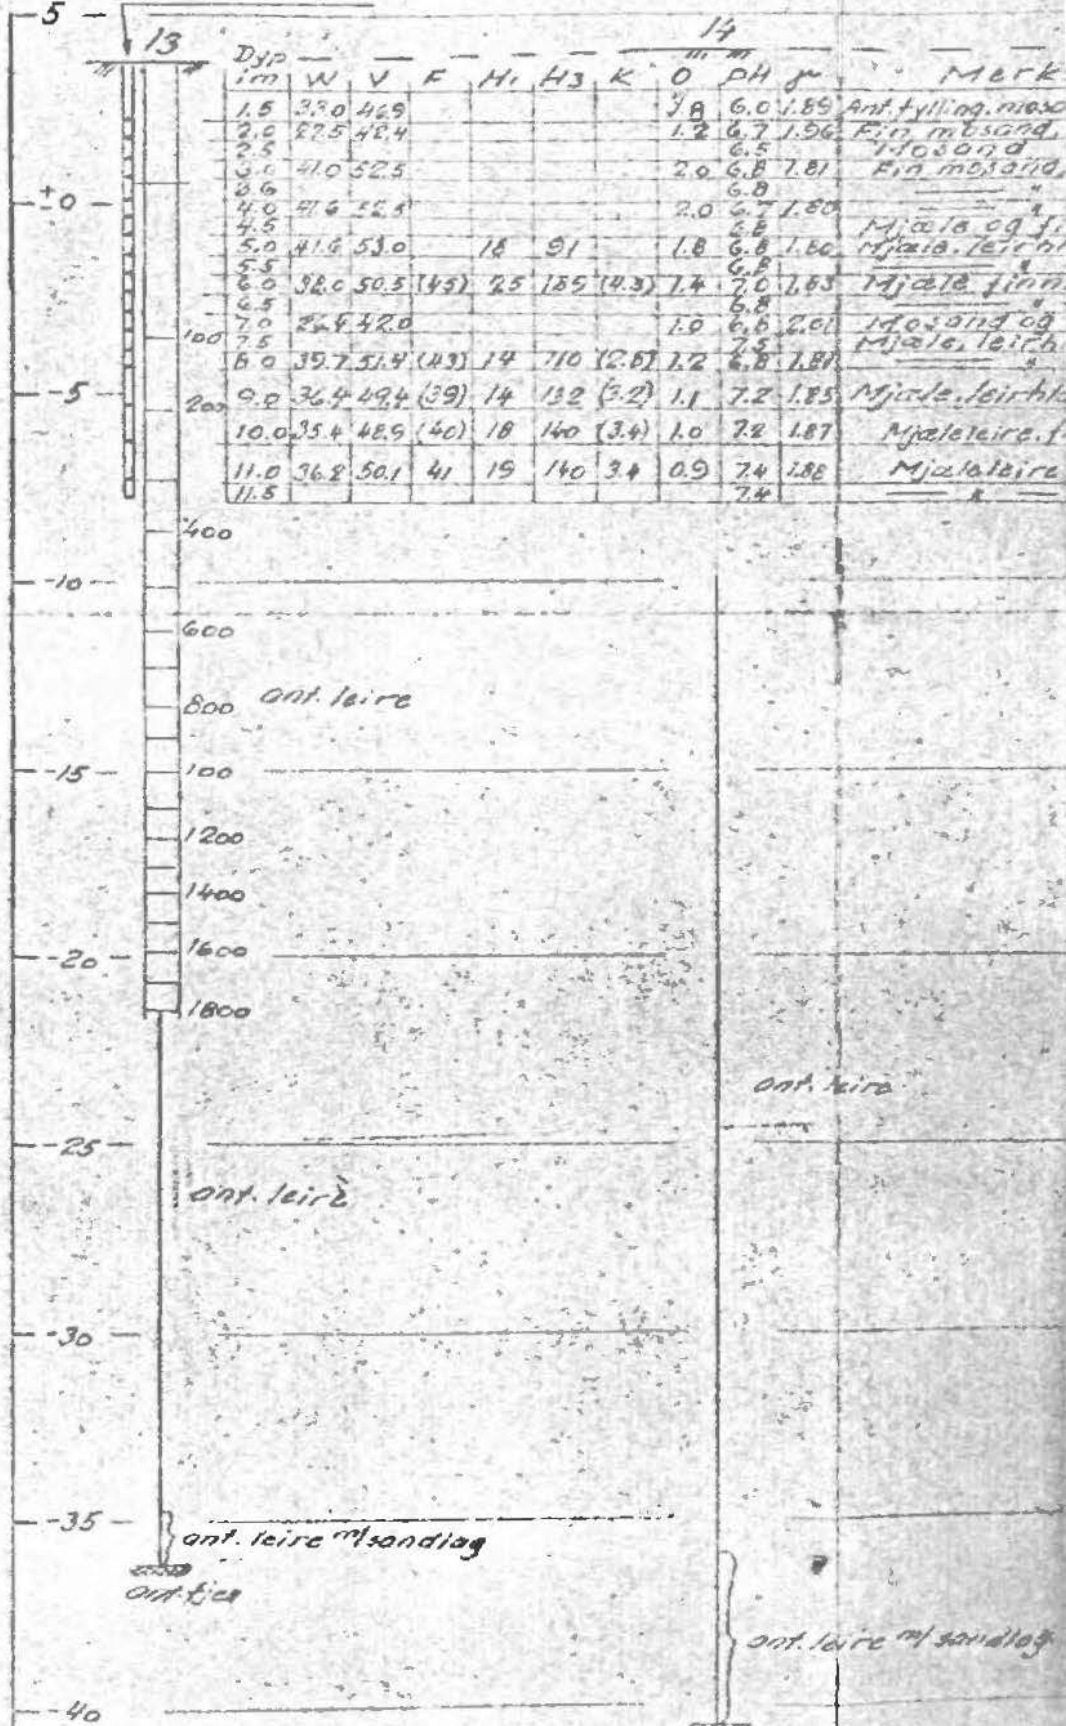 5
13
14
Dyp im W V F H1 H3 K O PH γ Merk
1.5 33.0 46.9 6.0 1.89 Ant. fylling.
2.0 27.5 42.4 1.2 6.7 1.96 Fin mosand,
2.5 6.5 Mosand
41.0 52.5 2.0 6.8 1.81 Fin mosand,
6.8 "
±0
4.0 41.6 52.5 2.0 6.7 1.80 "
4.5 6.8 Mjæle og fi
5.0 41.6 53.0 18 91 1.8 6.8 1.80 Mjæle.
5.5 6.8 "
6.0 38.0 50.5 (45) 25 185 (4.3) 1.4 7.0 1.83 Mjæle finn
6.5 6.8 "
7.0 42.0 1.0 6.8 2.01 Mosand og
100
7.5 7.5 Mjæle, leirh
8.0 39.7 51.4 (43) 14 110 (2.8) 1.2 6.8 1.81 "
-5
200
9.0 36.4 49.4 (39) 14 132 (3.2) 1.1 7.2 1.85 Mjæle, leirhl
10.0 35.4 48.9 (40) 18 140 (3.4) 1.0 7.2 1.87 Mjæleleire. f
11.0 36.2 50.1 41 19 140 3.4 0.9 7.4 1.88 Mjæleleire
11.5 7.4 "
400
-10
600
800 ant. leire
-15
100
1200
1400
1600
-20
1800
ant. leire
-25
ant. leire
-30
-35
ant. leire m/sandlag
ant. fjell
ant. leire m/ sandlag
-40